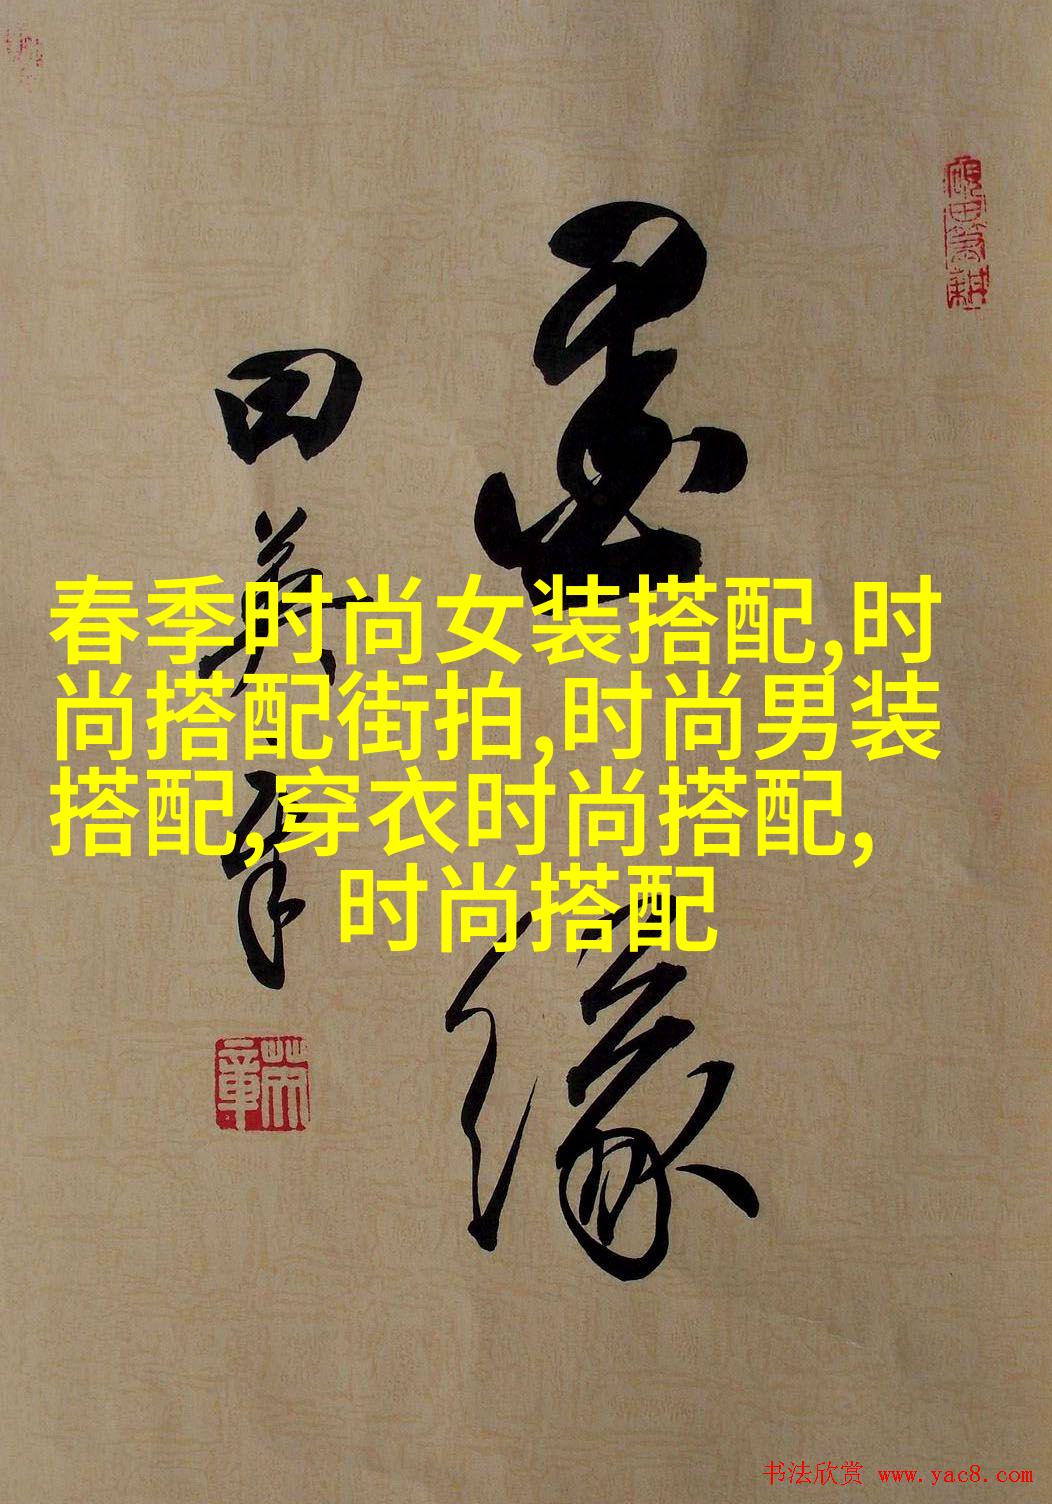 春季时尚女装搭配,时
尚搭配街拍,时尚男装
搭配,穿衣时尚搭配,
时尚搭配
墨
缘
田英章
书法欣赏 www.yac8.com